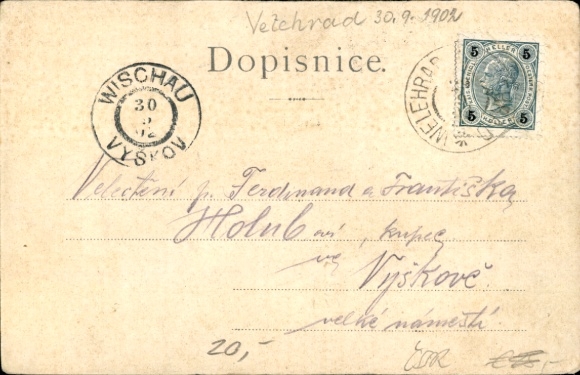 Velehrad 30.9.1902
Dopisnice.
5 HELLER 5
5 HELLER 5
WELEHRAD
WISCHAU
30
9
02
VYŠKOV
Velectění p. Ferdinand a Františka
Holubovi, kupec
ve
Vyškově.
velké náměstí.
20,-
ČSR